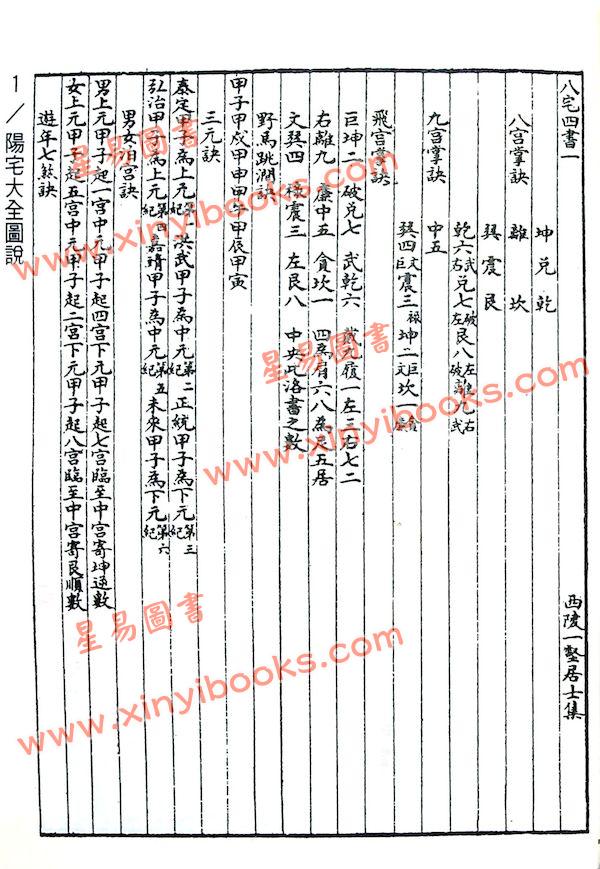 八宅四書一
西陵一壑居士集
坤兌乾
八宮掌訣 離 坎
巽震艮
乾六武右兌七破左艮八左破離九右武
九宮掌訣 中五
巽四文巨震三祿坤二巨文坎一貪
飛宮掌訣
巨坤二 破兌七 武乾六 戴九履一左三右七二
右離九 廉中五 貪坎一 四為肩六八為足五居
文巽四 祿震三 左艮八 中央此洛書之數
野馬跳澗訣
甲子甲戌甲申甲午甲辰甲寅
三元訣
泰定甲子為上元第一紀洪武甲子為中元第二紀正統甲子為下元第三紀
弘治甲子為上元第四紀嘉靖甲子為中元第五紀未來甲子為下元第六紀
男女泊宮訣
男上元甲子起一宮中元甲子起四宮下元甲子起七宮臨至中宮寄坤逆數
女上元甲子起五宮中元甲子起二宮下元甲子起八宮臨至中宮寄艮順數
遊年七煞訣
1/陽宅大全圖說
星易圖書
www.xinyibooks.com
星易圖書
www.xinyibooks.com
星易圖書
www.xinyibooks.com